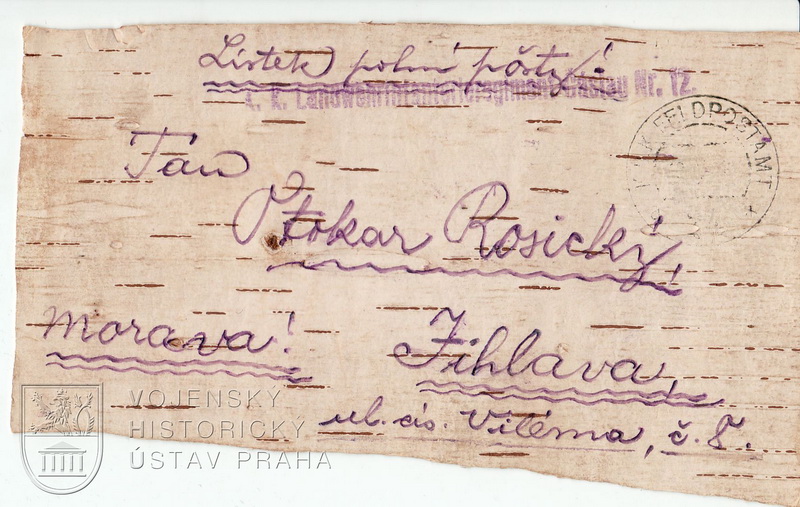 Lístek polní pošty!
k. k. Landwehrinfanterieregiment Caslau Nr. 12.
K.u.K. FELDPOSTAMT
Pan
Otokar Rosický,
Morava!
Jihlava,
ul. cís. Viléma, č. 8.
VOJENSKÝ
HISTORICKÝ
ÚSTAV PRAHA